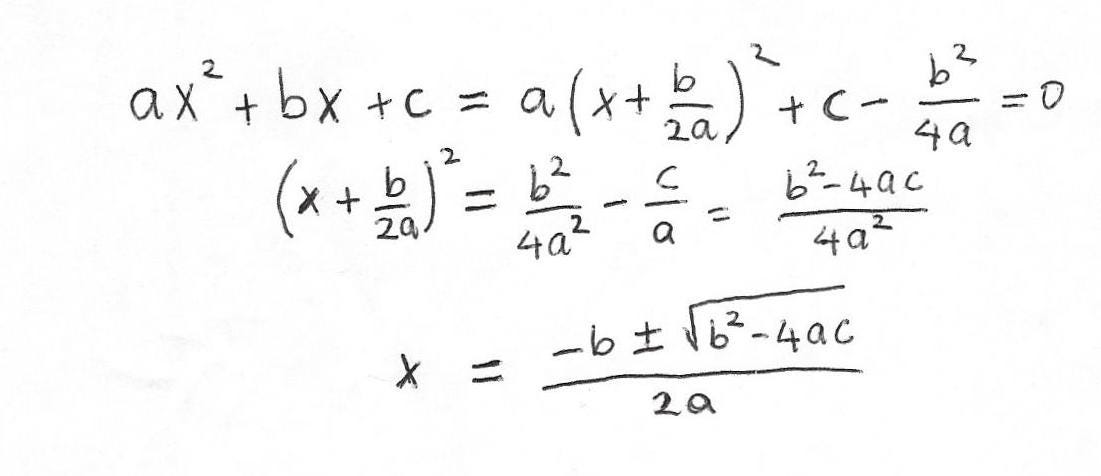 ax² + bx + c = a(x + b/2a)² + c - b²/4a = 0
(x + b/2a)² = b²/4a² - c/a = b²-4ac/4a²
x = -b ± √b²-4ac/2a